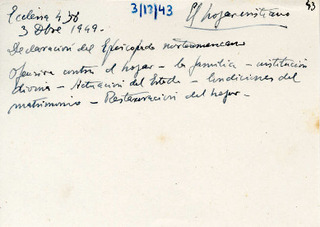 Ecclesia 438
3/12/43
El hogar cristiano
43
3 Dbre 1949.
Declaración del Episcopado norteamericano
Ofensiva contra el hogar - la familia - institución
divina - Actuación del Estado - Condiciones del
matrimonio - Restauración del hogar -